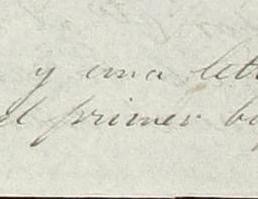 y una letr
el primer bo